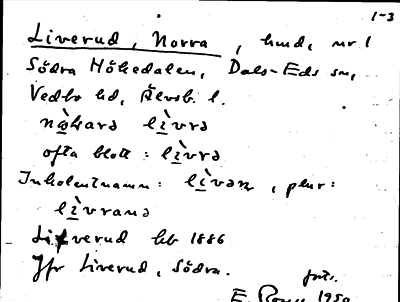 1-3
Liverud, Norra, hmd, nr 1
Södra Hökedalen, Dals-Eds sn,
Vedbo hd, Älvsb. l.
nø̀karə lìvrə
ofta blott: lìvrə
Inkolentnamn: lìvən, plur:
lìvranə
Lifverud kb 1886
Jfr Liverud, Södra.
forts.
E. 1950